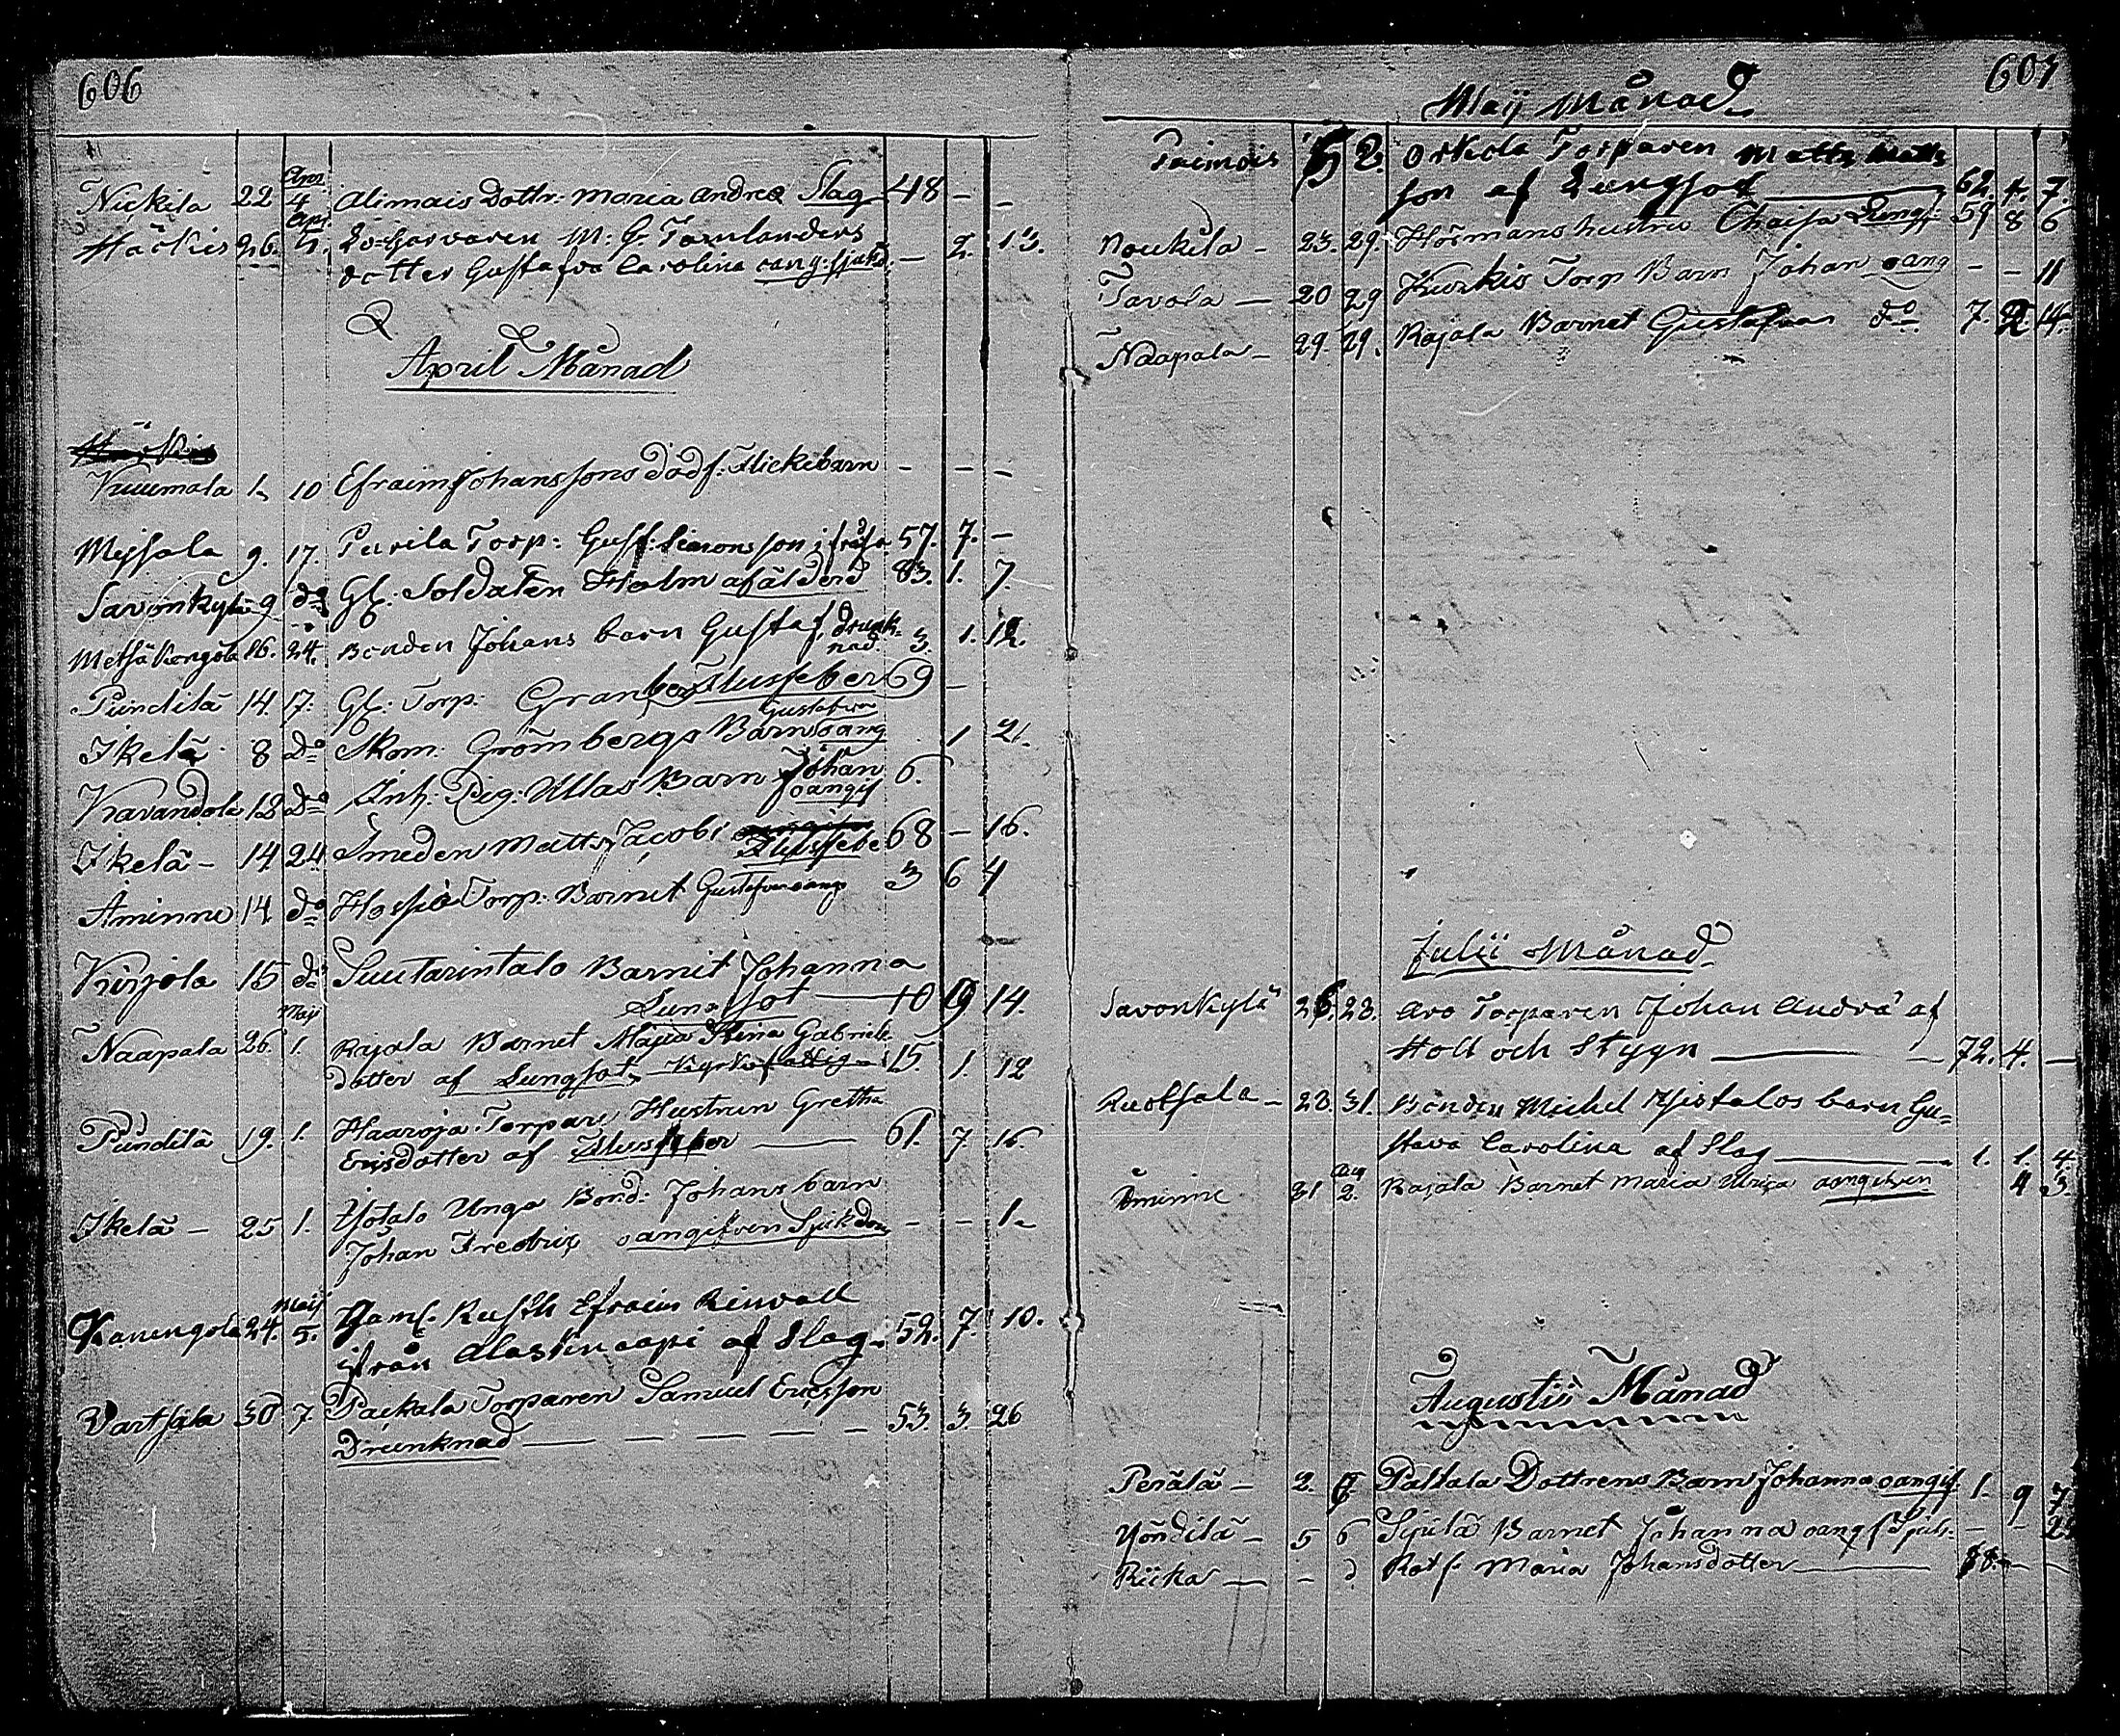 606
Apr.
Nickila 22 4 Alimais Dottr: Maria Andreæ Slag 48 – –
Apr.
Häckis 26. 5. Lo-Garvaren M: G: Tornlanders
dotter Gustafva Carolina oang. sjukd. – 2. 13.
April Månad
Kuumola 1. 10 Efraim Johanssons dödf. Flickebarn – – –
Mejsala 9. 17. Purila Torp: Gust: Simonsson 57. 7. –
Savonkylä 9 do Gl: Soldaten Holm af ålderd 83. 1. 7.
Metsä 16. 24. Bonden Johans barn Gustaf, drunk-
nad. 3. 1. 12.
Pündilä 14. 17. Gl: Torp: Granberg Flussfeber 69 –
Gustafva
Ikelä 8 do Skom: Grömbergs Barn oang 1 21.
Kavandola 12 do Inh. Pig: Ullas Barn Johan 6.
oangif
Ikelä – 14 24 Smeden Matts Jacobs 68 – 16.
Flussfebe
Åminne 14 do Torp: Barnet Gustafva oang 3 6 4
Kirjola 15 do Suutarintalo Barnet Johanna
Lungsot 10 9 14.
Maji
Naapala 26. 1. Rajala Barnet Maja Stina Gabriels
dotter af Lungsot 15. 1. 12
Pündilä 19. 1. Haaroja Torpare Hustrun Gretha
Ericsdotter af Flussfeber 61. 7 16
Ikelä – 25 1. Unga Bond: Johans barn
Johan Fredric oangifven Sjukdom – – 1.
Maij
Kanengola 24. 5. Gaml. Rusth Efraim Renvall
ifrån Alastencapi af Slag – 52. 7. 10.
Vartsala 30 7 Packala Torparen Samuel Ericsson
Drunknad – – – – – 53. 3. 26
607
Maij Månad
Paimois 2. Orkola Torparen Matts Matts
son af Lungsot 62. 4. 7.
Noukila – 23. 29. Hörmans hustru Chaisa Lungs: 59 8 6
Tavola – 20 29 Kurkis Torp Barn Johan oang – – 11
Naapala – 29. 29. Rajala Barnet Gustafva do 7. 2 14.
Julii Månad
Savonkylä 26. 28. Aro Torparen Johan Andrs af
Holl och Stygn 72. 4. –
Ruotsala – 28. 31. Bonden Michel Yistalos barn Gu-
stava Carolina af Slag 1. 1. 4.
Aug
Åminne 31 2. Rajala Barnet Maria Ulrica oangifven 4 3.
Augustii Månad
Perälä – 2. 6 Paltala Dottrens Barn Johanna oangif. 1. 9 7
Yöndilä – 5 6 Sjülä Barnet Johanna oangf Sjuk. – –
Riika – – d Rotf. Maria Johansdotter 88. – –